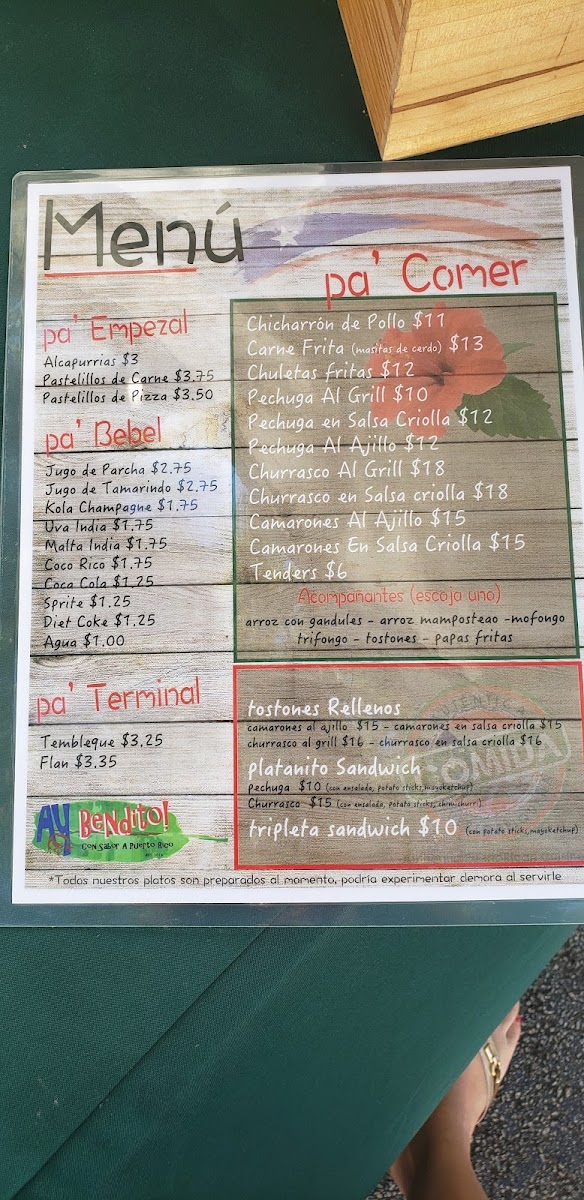 Menú
pa' Empezal
Alcapurrias $3
Pastelillos de Carne $3.75
Pastelillos de Pizza $3.50
pa' Bebel
Jugo de Parcha $2.75
Jugo de Tamarindo $2.75
Kola Champagne $1.75
Uva India $1.75
Malta India $1.75
Coco Rico $1.75
Coca Cola $1.25
Sprite $1.25
Diet Coke $1.25
Agua $1.00
pa' Terminal
Tembleque $3.25
Flan $3.35
Ay Bendito!
Con Sabor A Puerto Rico
pa' Comer
Chicharrón de Pollo $11
Carne Frita (masitas de cerdo) $13
Chuletas fritas $12
Pechuga Al Grill $10
Pechuga en Salsa Criolla $12
Pechuga Al Ajillo $12
Churrasco Al Grill $18
Churrasco en Salsa criolla $18
Camarones Al Ajillo $15
Camarones En Salsa Criolla $15
Tenders $6
Acompañantes (escoja uno)
arroz con gandules - arroz mamposteao -mofongo
trifongo - tostones - papas fritas
tostones Rellenos
camarones al ajillo $15 - camarones en salsa criolla $15
churrasco al grill $16 - churrasco en salsa criolla $16
Platanito Sandwich
Pechuga $10 (con ensalada, potato sticks,mayoketchup)
Churrasco $15 (con ensalada, potato sticks,chimichurri)
tripleta sandwich $10 (con potato sticks,mayoketchup)
COMIDA
*Todos nuestros platos son preparados al momento, podría experimentar demora al servirle